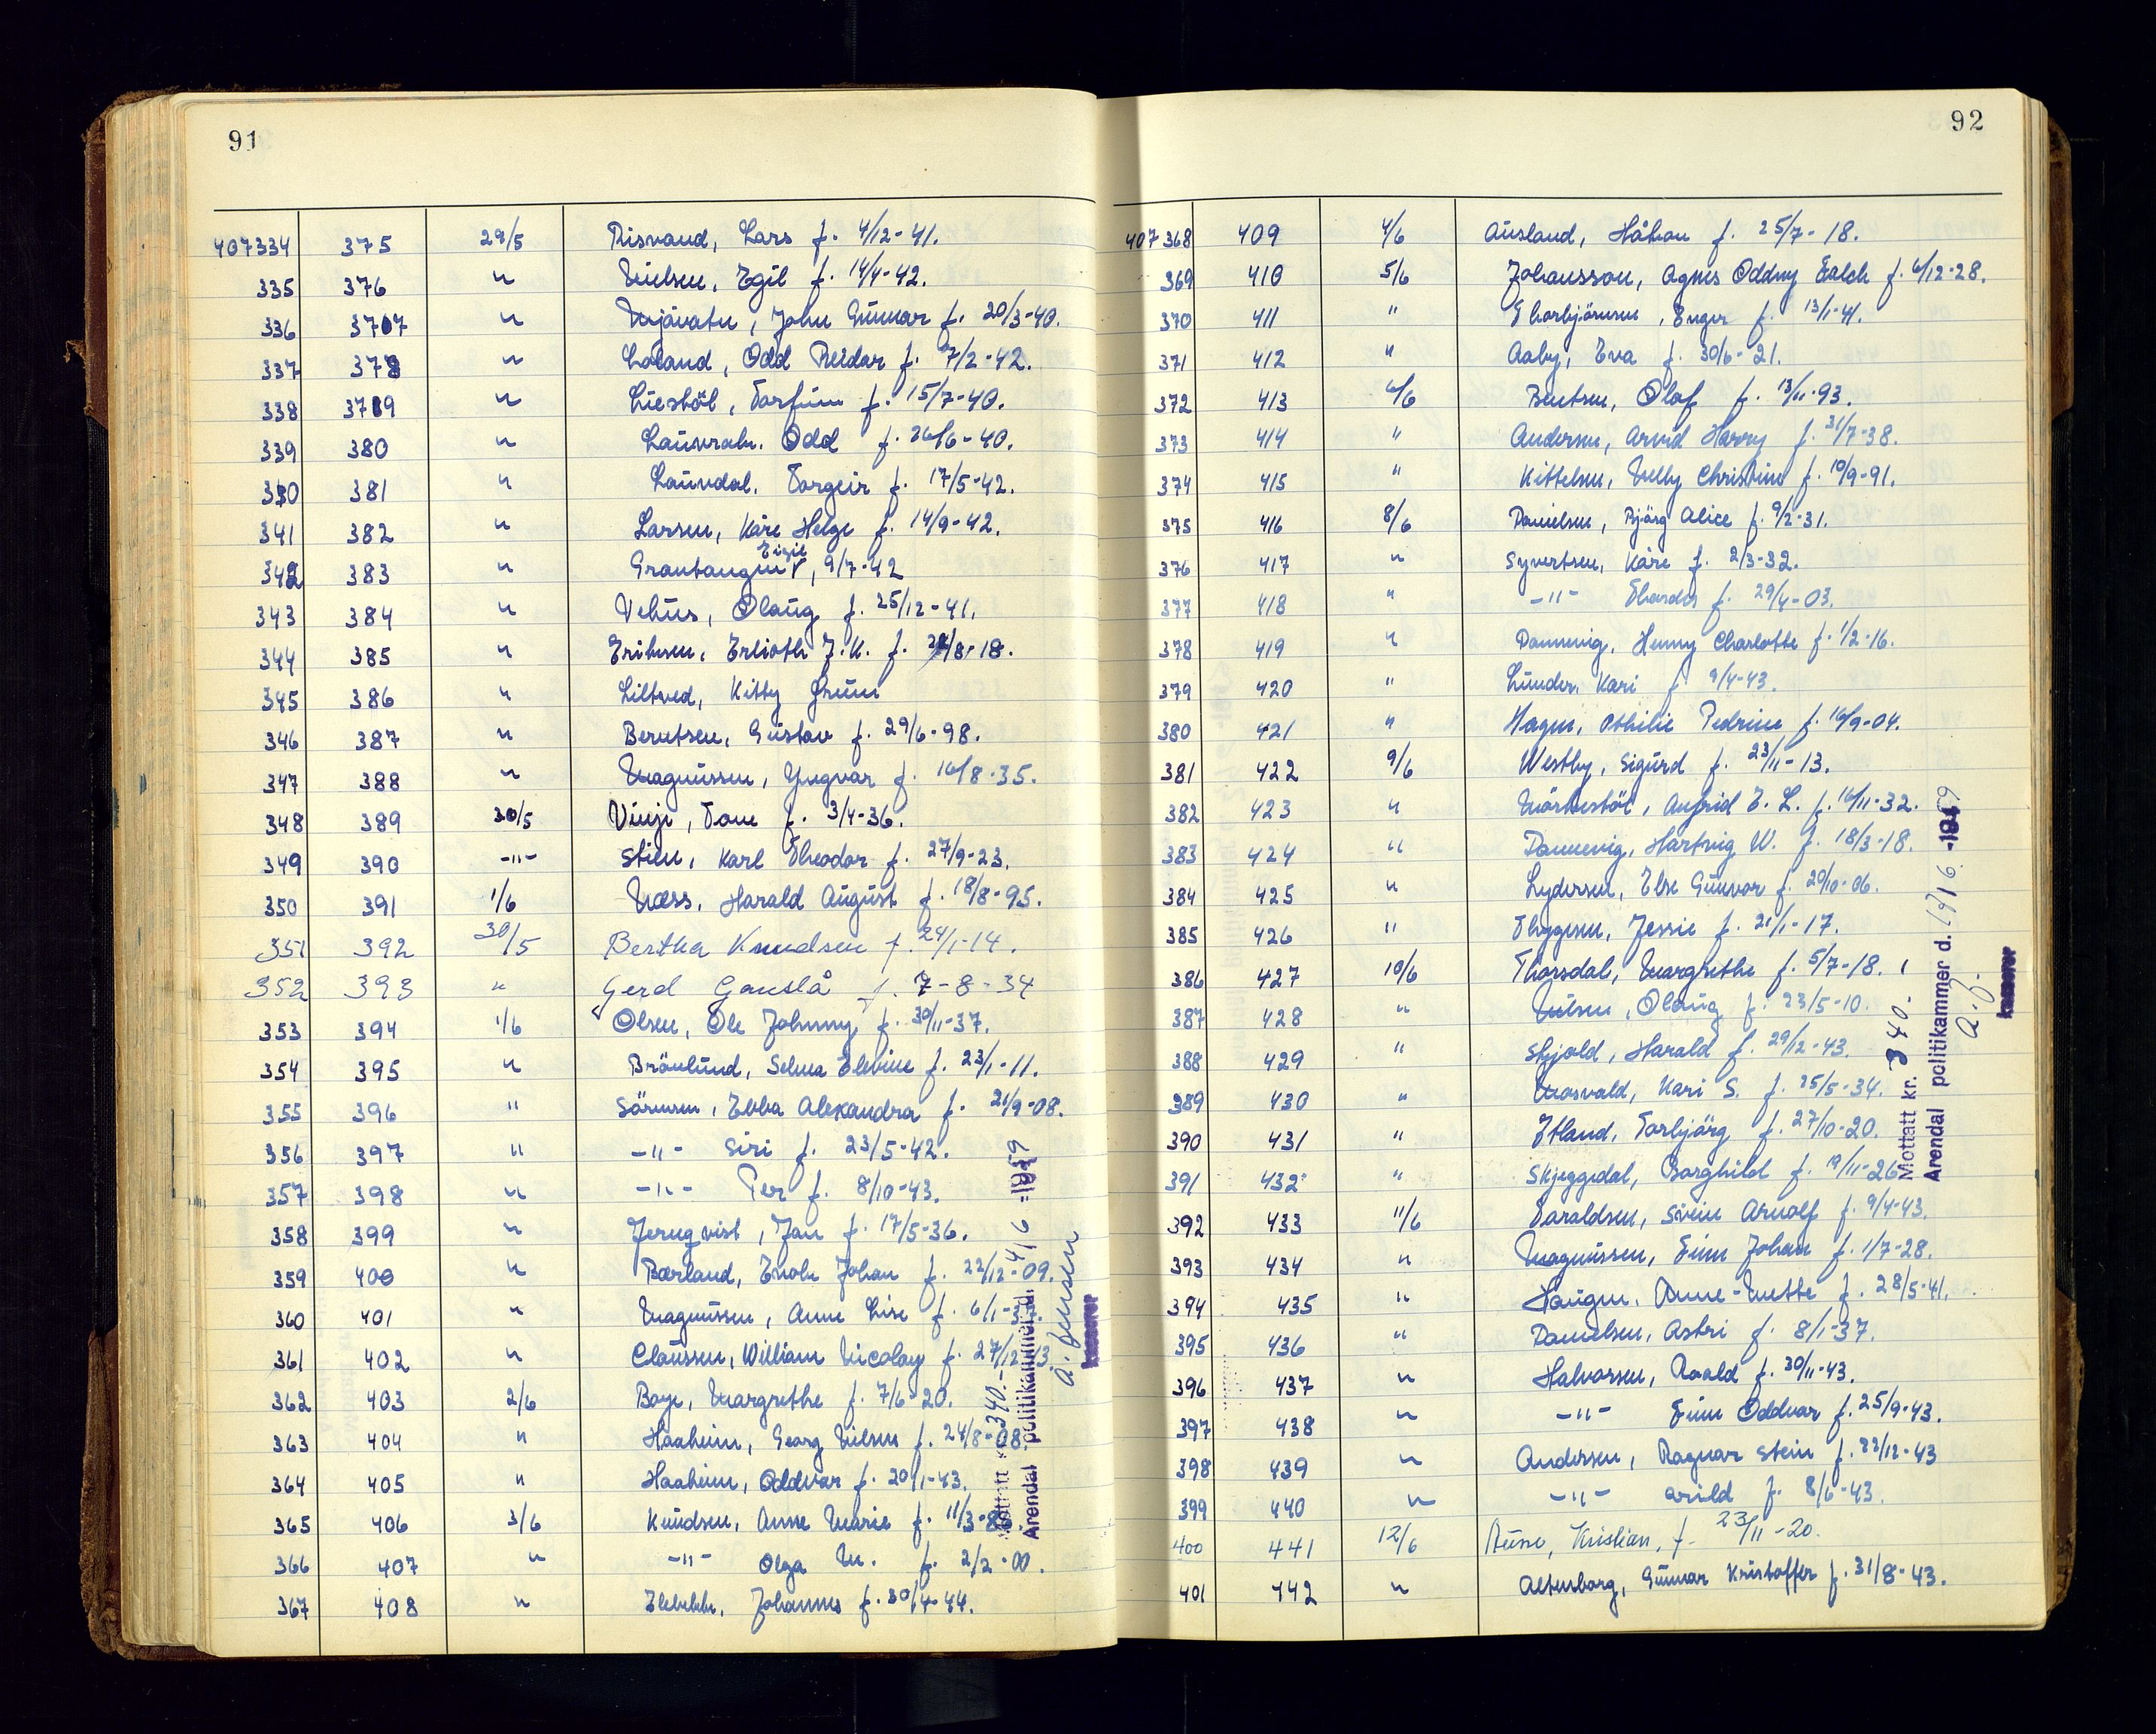 91
407334 375 29/5 Risvand, Lars f. 4/12-41.
335 376 " Nielsen, Egil f. 14/4-42.
336 377 " John Gunnar f. 20/3-40.
337 378 " Loland, Odd Reidar f. 7/2-42.
338 379 " Liestöl, Torfinn f. 15/7-40.
339 380 " Lauvrak. Odd f. 26/6-40.
340 381 " Lauvdal. Torgeir f. 17/5-42.
341 382 " Larsen, Kåre Helge f. 14/9-42.
342 383 " Eigil, 9/7-42
343 384 " Vehus, Olaug f. 25/12-41.
344 385 " Eriksen, J.K. f. /8-18.
345 386 " Liltved, Kitty Grüm
346 387 " Berntsen, Gustav f. 29/6-98.
347 388 " Magnussen, Yngvar f. 16/8-35.
348 389 30/5 Vinje, Tone f. 3/4-36.
349 390 -"- Stien, Karl Theodor f. 27/9-23.
350 391 1/6 Næss, Harald August f. 18/8-95.
351 392 30/5 Bertha Knudsen f. 24/1-14.
352 393 " Gerd Gauslå f. 7-8-34
353 394 1/6 Olsen, Ole Johnny f. 30/11-37.
354 395 " Brönlund, Selma Elevine f. 23/1-11.
355 396 " Sörensen, Ebba Alexandra f. 21/9-08.
356 397 " -"- Siri f. 23/5-42.
357 398 " -"- Per f. 8/10-43.
358 399 " Jernqvist, Jan f. 17/5-36.
359 400 " Bærland, Enok Johan f. 22/12-09.
360 401 " Magnussen, Anne Lise f. 6/1-37.
361 402 " Claussen, William Nicolay f. 27/12-13.
362 403 2/6 Boye, Margrethe f. 7/6-20.
363 404 " Haaheim, Georg Nilsen f. 24/8-08.
364 405 " Haaheim, Oddvar f. 20/1-43.
365 406 3/6 Knudsen, Anne Marie f. 11/3-86
366 407 " -"- Olga M. f. 2/2-00.
367 408 " Johannes f. 30/4-44.
Mottatt kr. 340.-
Arendal politikammer d. 4/6 1959
A. Jensen
kasserer
92
407368 409 4/6 Ausland, Håkon f. 25/7-18.
369 410 5/6 Johansson, Agnes Oddny Falch f. 6/12-28.
370 411 " Thorbjörnsen, Inger f. 13/1-41.
371 412 " Aaby, Eva f. 30/6-21.
372 413 6/6 Bentsen, Olaf f. 13/11-93.
373 414 " Andersen, Arvid Harry f. 31/7-38.
374 415 " Kittelsen, Nelly Christine f. 10/9-91.
375 416 8/6 Danielsen, Bjårg Alice f. 9/2-31.
376 417 " Syvertsen, Kåre f. 2/3-32.
377 418 " -"- Thordis f. 29/4-03.
378 419 " Dannevig, Henny Charlotte f. 1/2-16.
379 420 " Lunder. Kari f. 9/4-43.
380 421 " Hagen, Othilie Pedrine f. 16/9-04.
381 422 9/6 Westby, Sigurd f. 23/11-13.
382 423 " Anfrid E. L. f. 16/11-32.
383 424 " Dannevig, Hartvig W. f. 18/3-18.
384 425 " Lydersen, Else Gunvor f. 20/10-06.
385 426 " Thygesen, Jessie f. 21/1-17.
386 427 10/6 Thorsdal, Margrethe f. 5/7-18.
387 428 " Nilsen, Olaug f. 23/5-10.
388 429 " Skjold, Harald f. 29/12-43.
389 430 " Mosvald, Kari S. f. 25/5-34.
390 431 " Torbjörg f. 27/10-20.
391 432 " Skjeggedal, Borghild f. 19/11-26
392 433 11/6 Taraldsen, Svein Arnolf f. 9/4-43.
393 434 " Magnussen, Finn Johan f. 1/7-28.
394 435 " Haugen. Anne-Mette f. 28/5-41.
395 436 " Danielsen, Astri f. 8/1-37.
396 437 " Halvorsen, Roald f. 30/11-43.
397 438 " -"- Finn Oddvar f. 25/9-43.
398 439 " Andersen, Ragnar Stein f. 22/12-43
399 440 " -"- Arild f. 8/6-43.
400 441 12/6 Kristian, f. 23/11-20.
401 442 " Altenborg, Gunnar Kristoffer f. 31/8-43.
Mottatt kr. 340.-
Arendal politikammer d. 17/6 1959
A. J.
kasserer